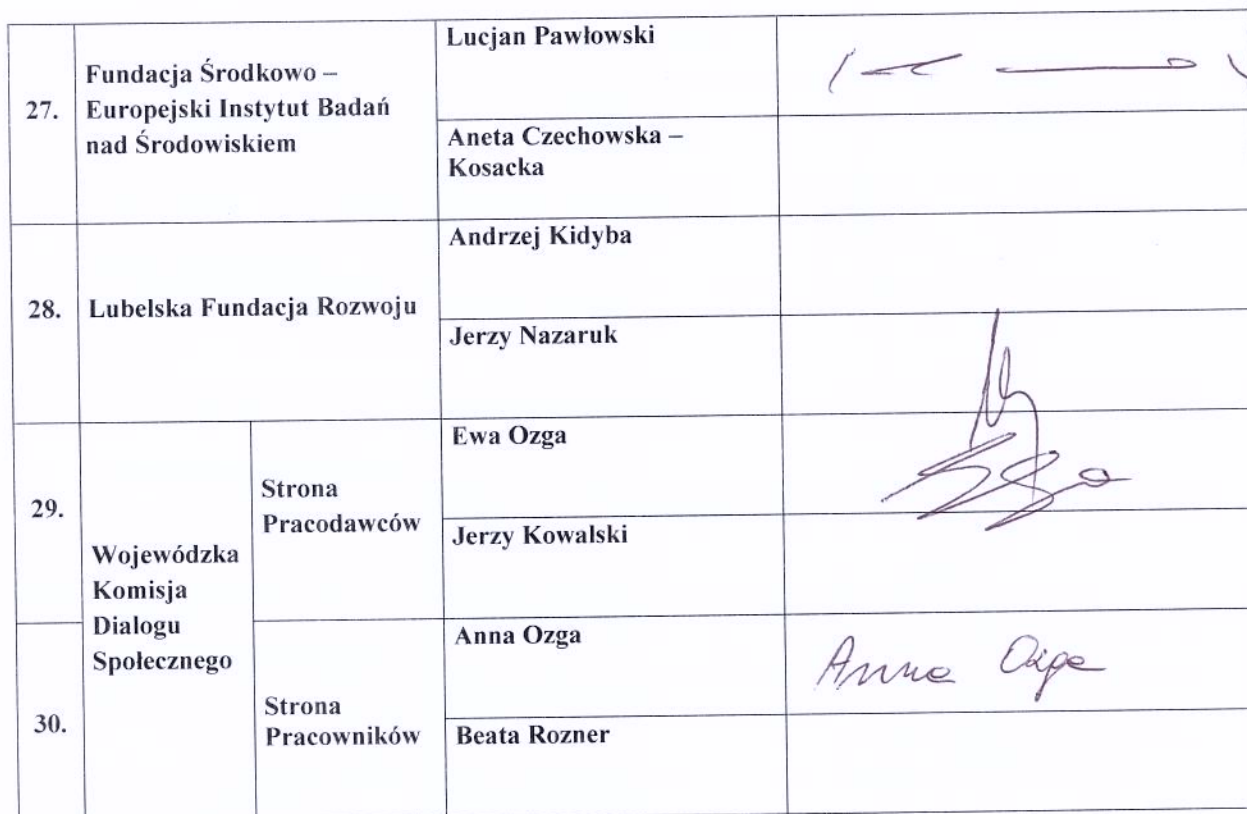 27.
Fundacja Środkowo –
Europejski Instytut Badań
nad Środowiskiem
Lucjan Pawłowski
Aneta Czechowska –
Kosacka
28.
Lubelska Fundacja Rozwoju
Andrzej Kidyba
Jerzy Nazaruk
29.
Wojewódzka
Komisja
Dialogu
Społecznego
Strona
Pracodawców
Ewa Ozga
Jerzy Kowalski
30.
Strona
Pracowników
Anna Ozga
Anna Ozga
Beata Rozner